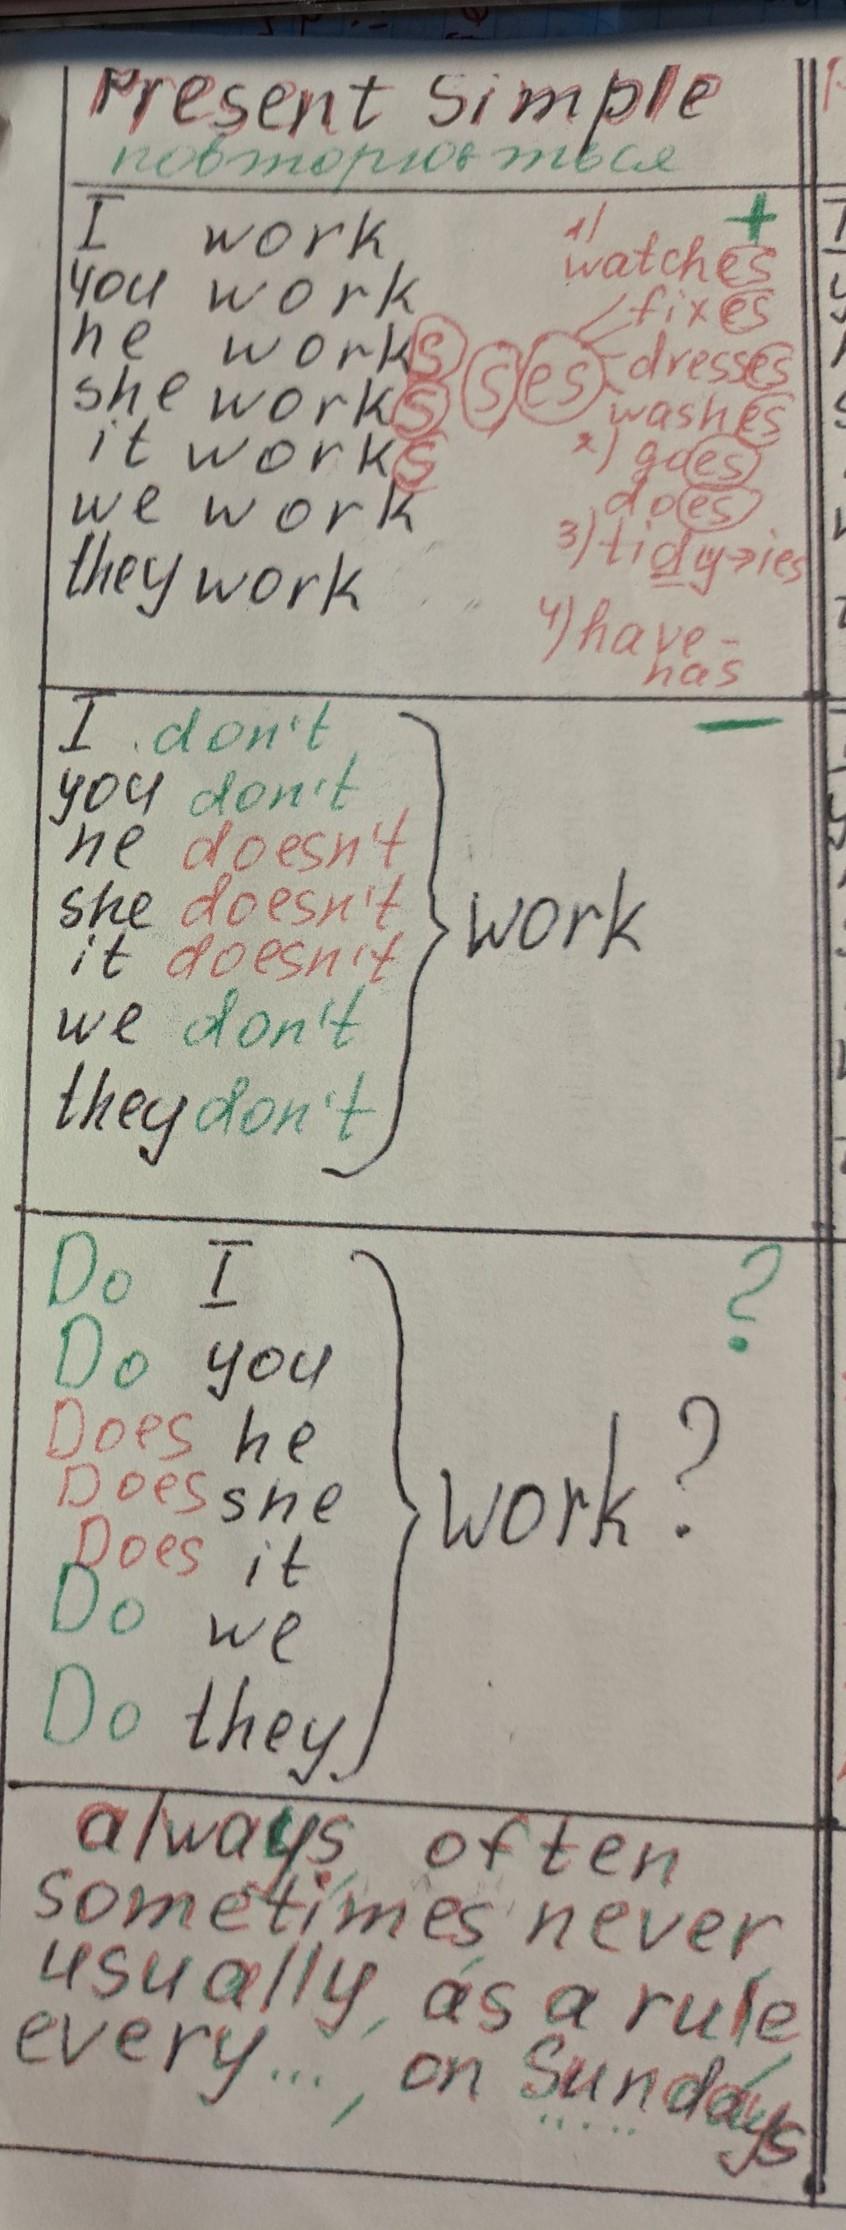 Present Simple
повторюється
I work
you work
he works
she works
it works
we work
they work
s es
+
1)
watches
fixes
dresses
washes
2) goes
does
3) tidy→ies
4) have-
has
I don't
you don't
he doesn't
she doesn't
it doesn't
we don't
they don't
work
—
Do I
Do you
Does he
Does she
Does it
Do we
Do they
work?
?
always, often
sometimes, never,
usually, as a rule,
every..., on Sundays
.....